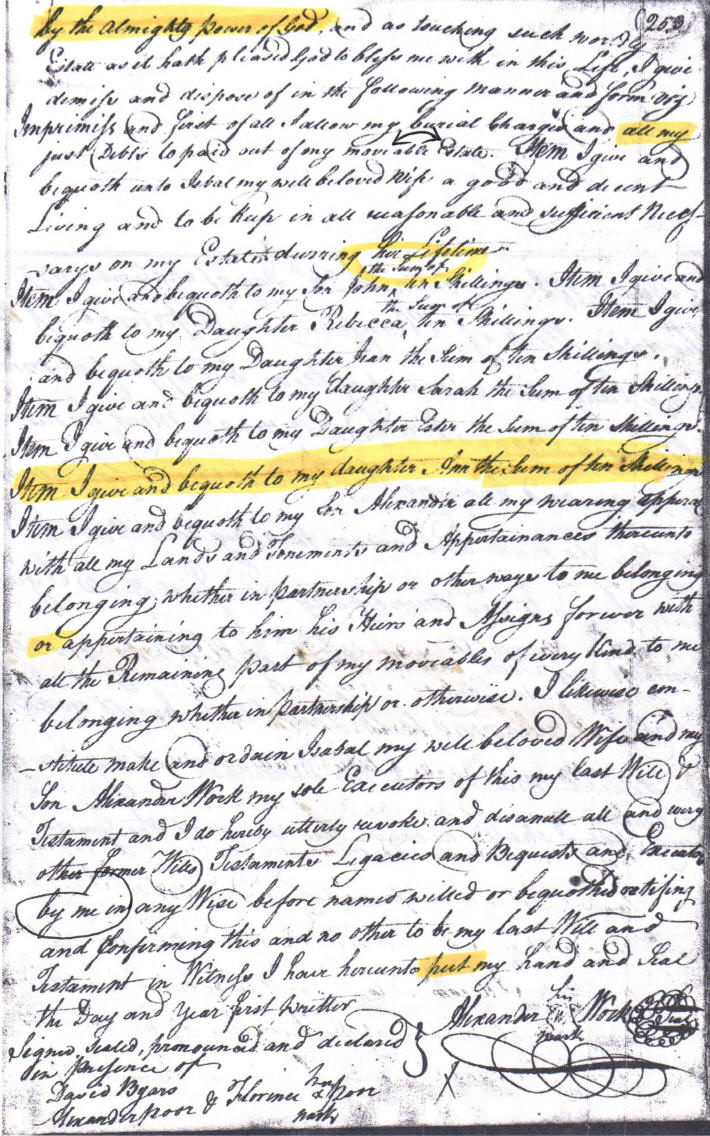 by the Almighty power of God, and as touching such worldly (253)
Estate as it hath pleased God to bless me with in this Life, I give
demiss and dispose of in the following manner and form viz
Imprimiss and first of all I allow my burial Charges and all my
just Debts to paid out of my moveable Estate. Item I give and
bequoth unto Isbal my well beloved Wife a good and decent
Living and to be keep in all reasonable and sufficient Neces-
sarys on my Estate durring her Lifetime
Item I give and bequoth to my Son John, the Sum of ten Shillings. Item I give and
bequoth to my Daughter Rebecca, the Sum of ten Shillings. Item I give
and bequoth to my Daughter Jean the Sum of ten Shillings.
Item I give and bequoth to my daughter Sarah the Sum of ten Shillings
Item I give and bequoth to my Daughter Ester the Sum of ten Shillings.
Item I give and bequoth to my daughter Ann the Sum of ten Shillings
Item I give and bequoth to my Son Alexander all my wearing apparal
with all my Lands and Tenements and Appertainances thereunto
belonging, whether in partnership or other ways to me belonging
or appertaining to him his Heirs and Assigns forever with
all the Remaining part of my moveables of every kind to me
belonging whether in partnership or otherwise. I likewise con-
-stitute make and ordain Isabal my well beloved Wife and my
Son Alexander Work my sole Executors of this my last Will &
Testament and I do hereby utterly revoke and disanull all and every
other former Wills Testaments Legacies and Bequests and Executors
by me in any Wise before named willed or bequothed ratifing
and Confirming this and no other to be my last Will and
Testament in Witness I have hereunto put my hand and Seal
the Day and year first written
Alexander his mark Work Seal
Signed, sealed, pronounced and declared
in presence of
David Byars
Alexander Poor & Florence her x mark Poor